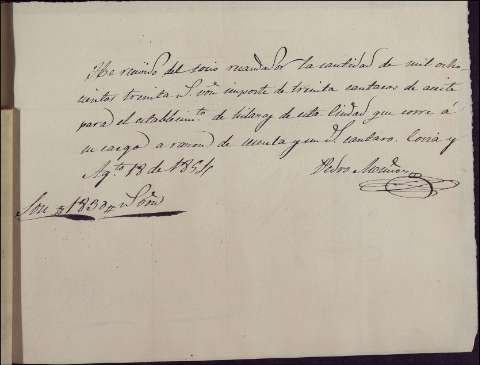 He recivido del socio recaudador la cantidad de mil ocho
cientos treinta rs. von. importe de treinta cantaros de aceite
para el establecimto. de de esta Ciudad que corre á
su cargo a razon de sesenta y un rs. cantaro. Coria y
Agto. 18 de 1854
Pedro
Son 1830 rs. von.